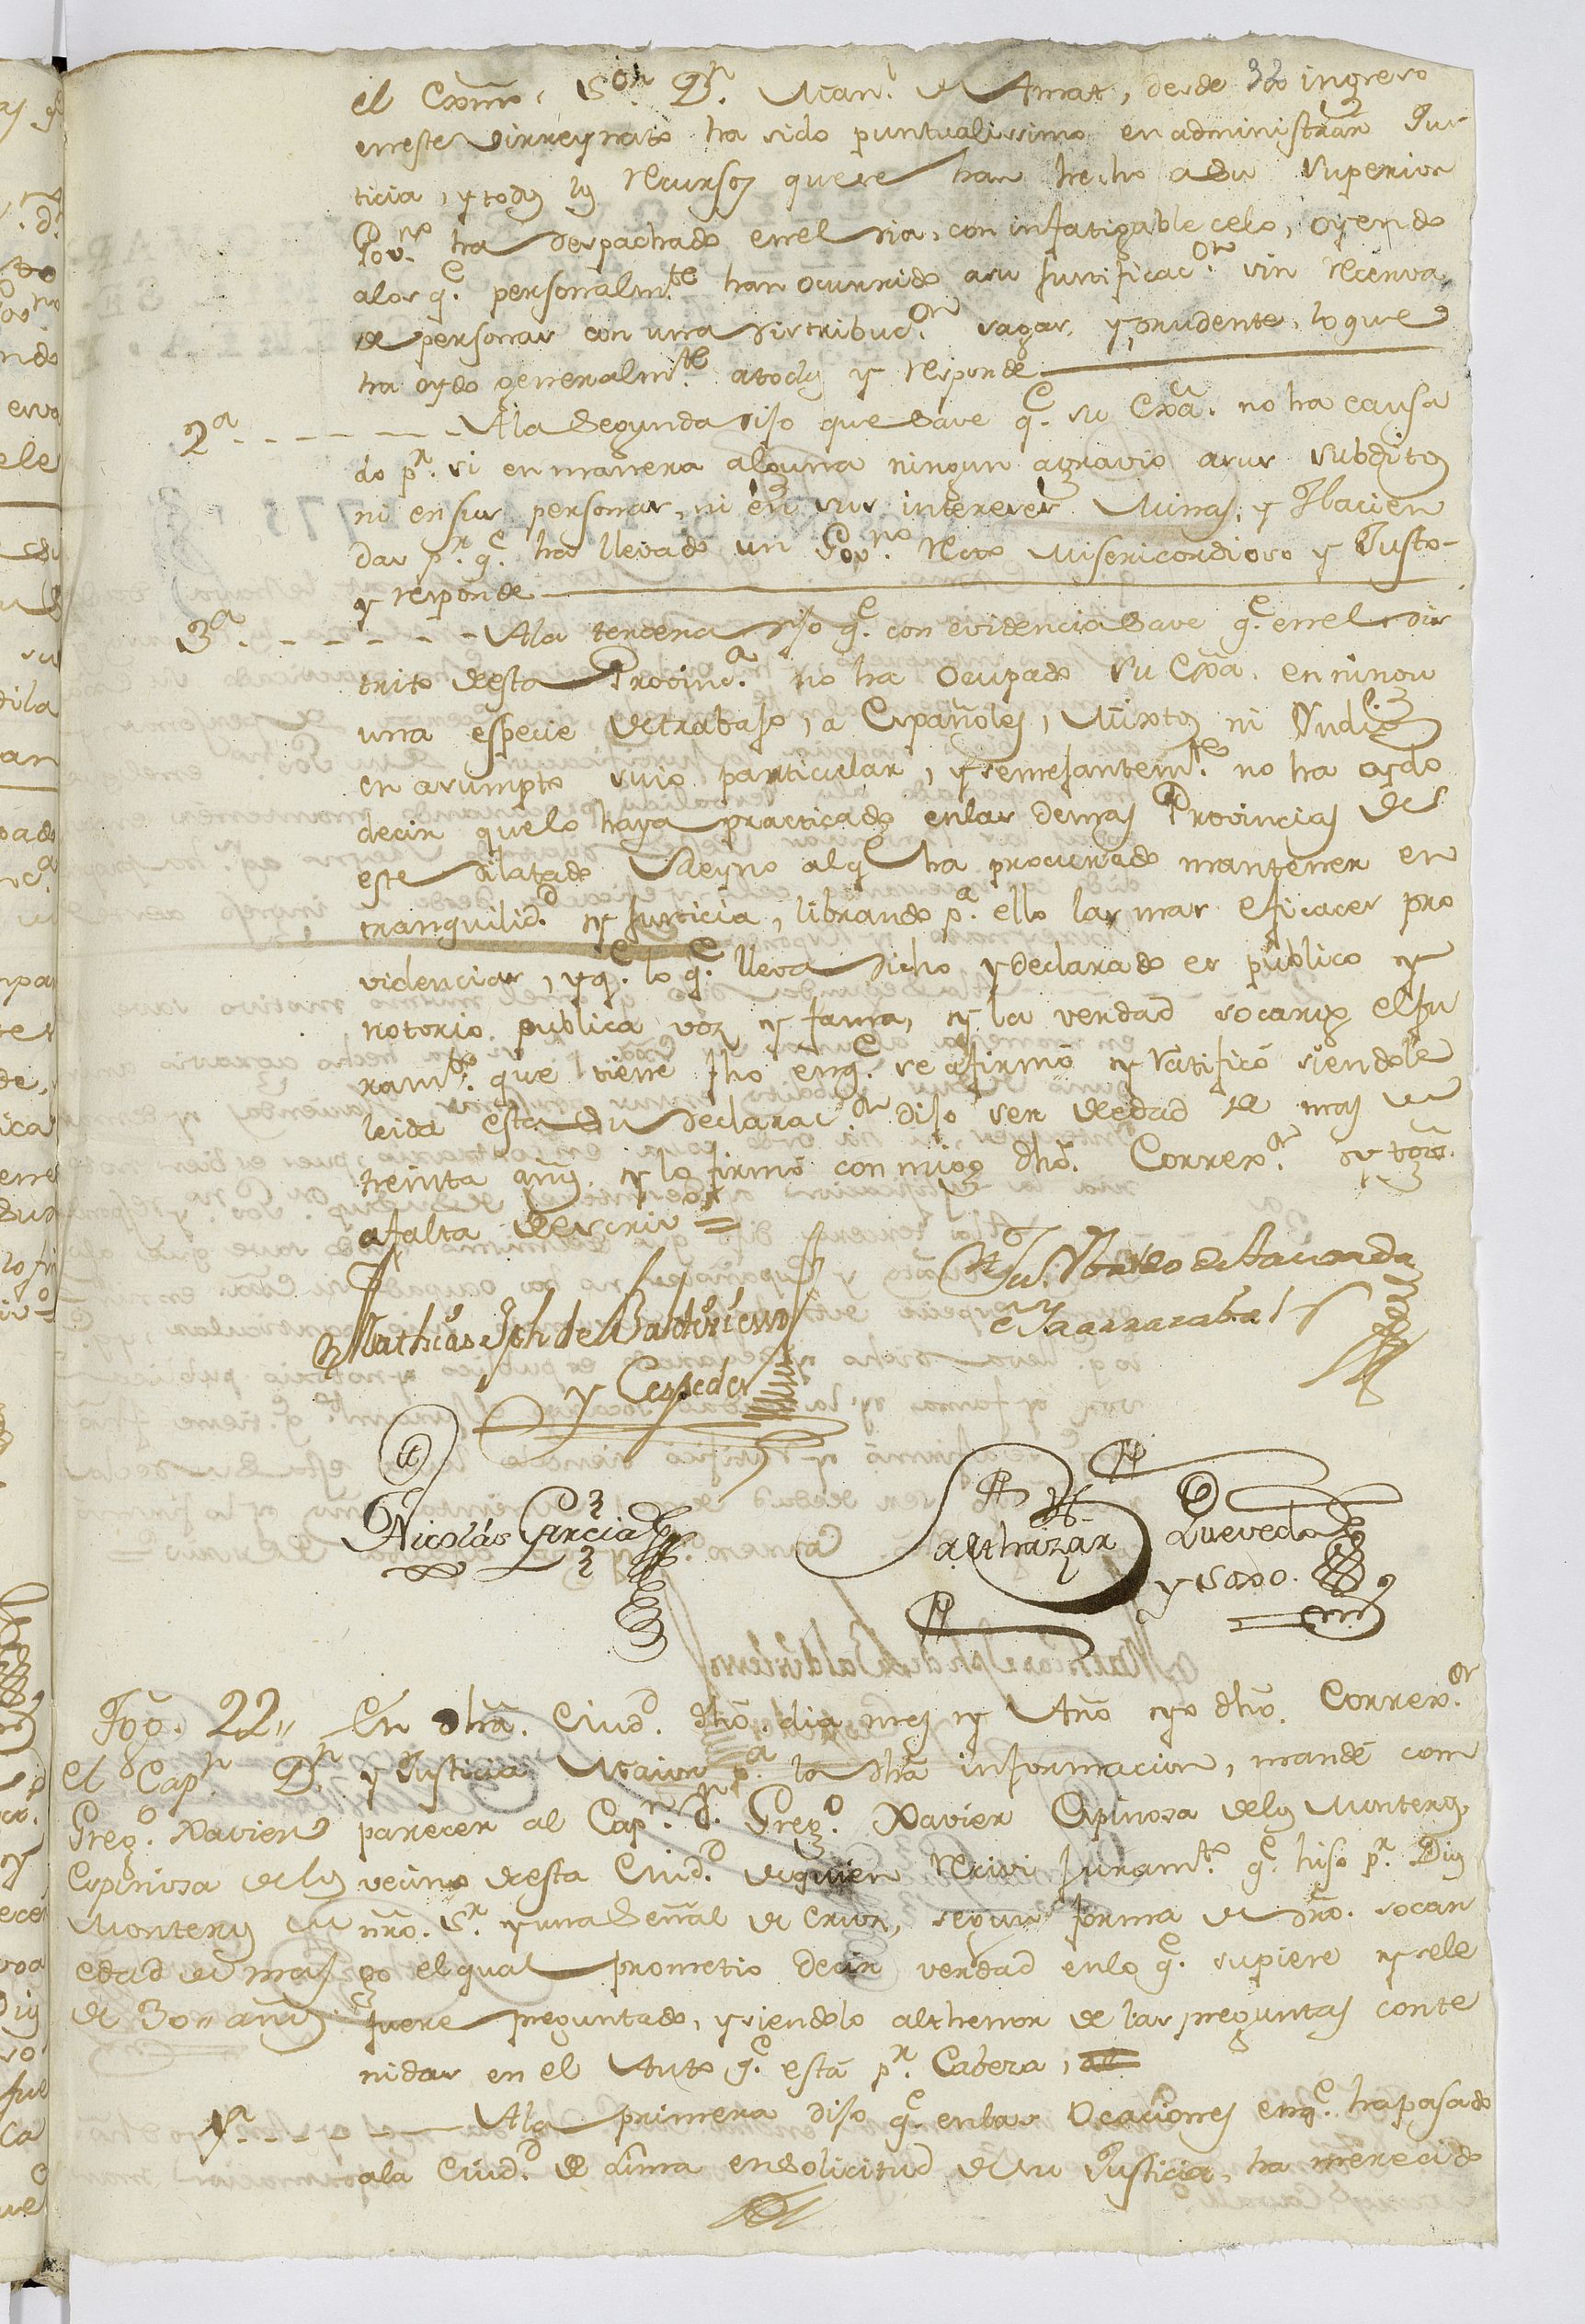 el Exmo. Sor. Dn. Manl. de Amat, desde su ingreso
en este Virreynato ha sido puntualissimo en administrar Jus
ticia, y todos los recursos que se han hecho a su Superior
Govno. ha despachado en el dia, con infatigable celo, oyendo
alos qe. personalmte. han ocurrido asu justificacon. sin recerva
de personas con una distribucon. sagas, y prudente, lo que
ha oydo generalmte. atodos y responde
2a. Ala Segunda dijo que save qe. su Exa. no ha causa
do pr. si en manera alguna ningun agravio asus subditos
ni en sus personas, ni en sus intereses Minas, y Hacien
das pr. qe. ha llevado un Govno. Recto Misericordioso y Justo
y responde
3a. Ala tercera dijo qe. con evidencia save qe. en el dis
trito desta Provinca. no ha ocupado su Exa. en ningu
una especie de trabajo, a Españoles, Mixtos ni Yndios
en asumpto suio particular, y semejantemte. no ha oydo
decir quelo haya practicado enlas demas Provincias de
este dilatado Reyno al qe ha procurado mantener en
tranquilidd. y justicia, librando pa. ello las mas eficaces pro
videncias, y qe. lo qe. lleva dicho y declarado es publico y
notorio, publica voz y fama, y la verdad socargo el ju
ramto. que tiene fho enqe. se afirmó y ratificó siendole
leida esta su declaracon. dijo ser de edad de mas de
treinta años y lo firmó conmigo dho. Correxor. y tgos.
afalta de escrivo =
Mathias Jph de Baldivieso
y Cespedes
Nicolás Garcia
Balthazar Quevedo
y Soxo.
Tgo. 22
el Capn. Dn.
Grego. Xavier
Espinosa delos
Monteros su
edad de mas
de 30 años
En dha. Ciudd. dho. dia mes y Año yo dho. Correxor.
y Justicia Maior pa. la dha informacion, mandé com
parecer al Capn. Dn. Grego. Xavier Espinosa delos Monteros
vecino desta Ciudd. dequien recivi juramto. qe. hiso pr. Dios
nro. Sr. y una Señal de Cruz, segun forma de dro. socar
go el qual prometio decir verdad enlo qe. supiere y sele
fuere preguntado, y siendolo althenor de las preguntas conte
nidas en el Auto qe. está pr. Cabeza,
1a. Ala primera dijo qe. enlas Ocaciones enqe. hapasado
ala Ciudd. de Lima en solicitud de su Justicia, ha merecido